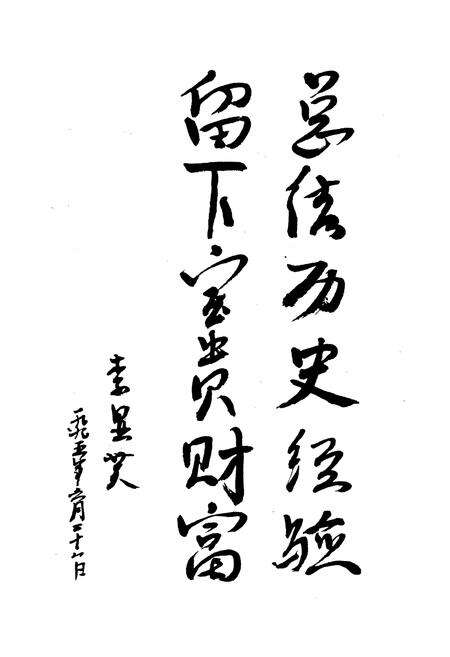 总结历史经验
留下宝贵财富
李昌
一九九五年六月二十八日